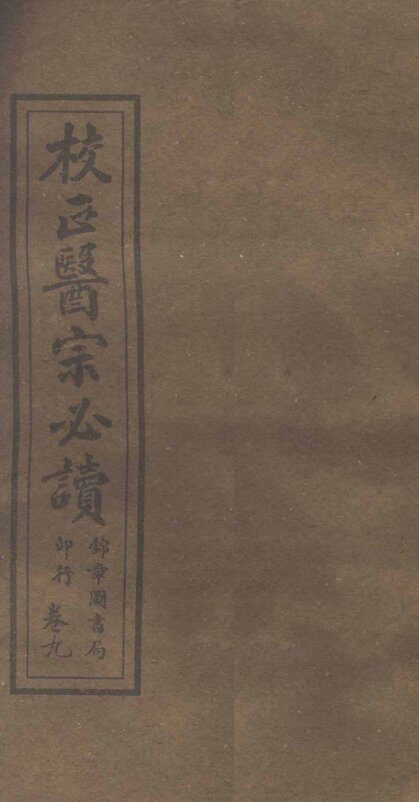 校正醫宗必讀
錦章圖書局
印行
卷九